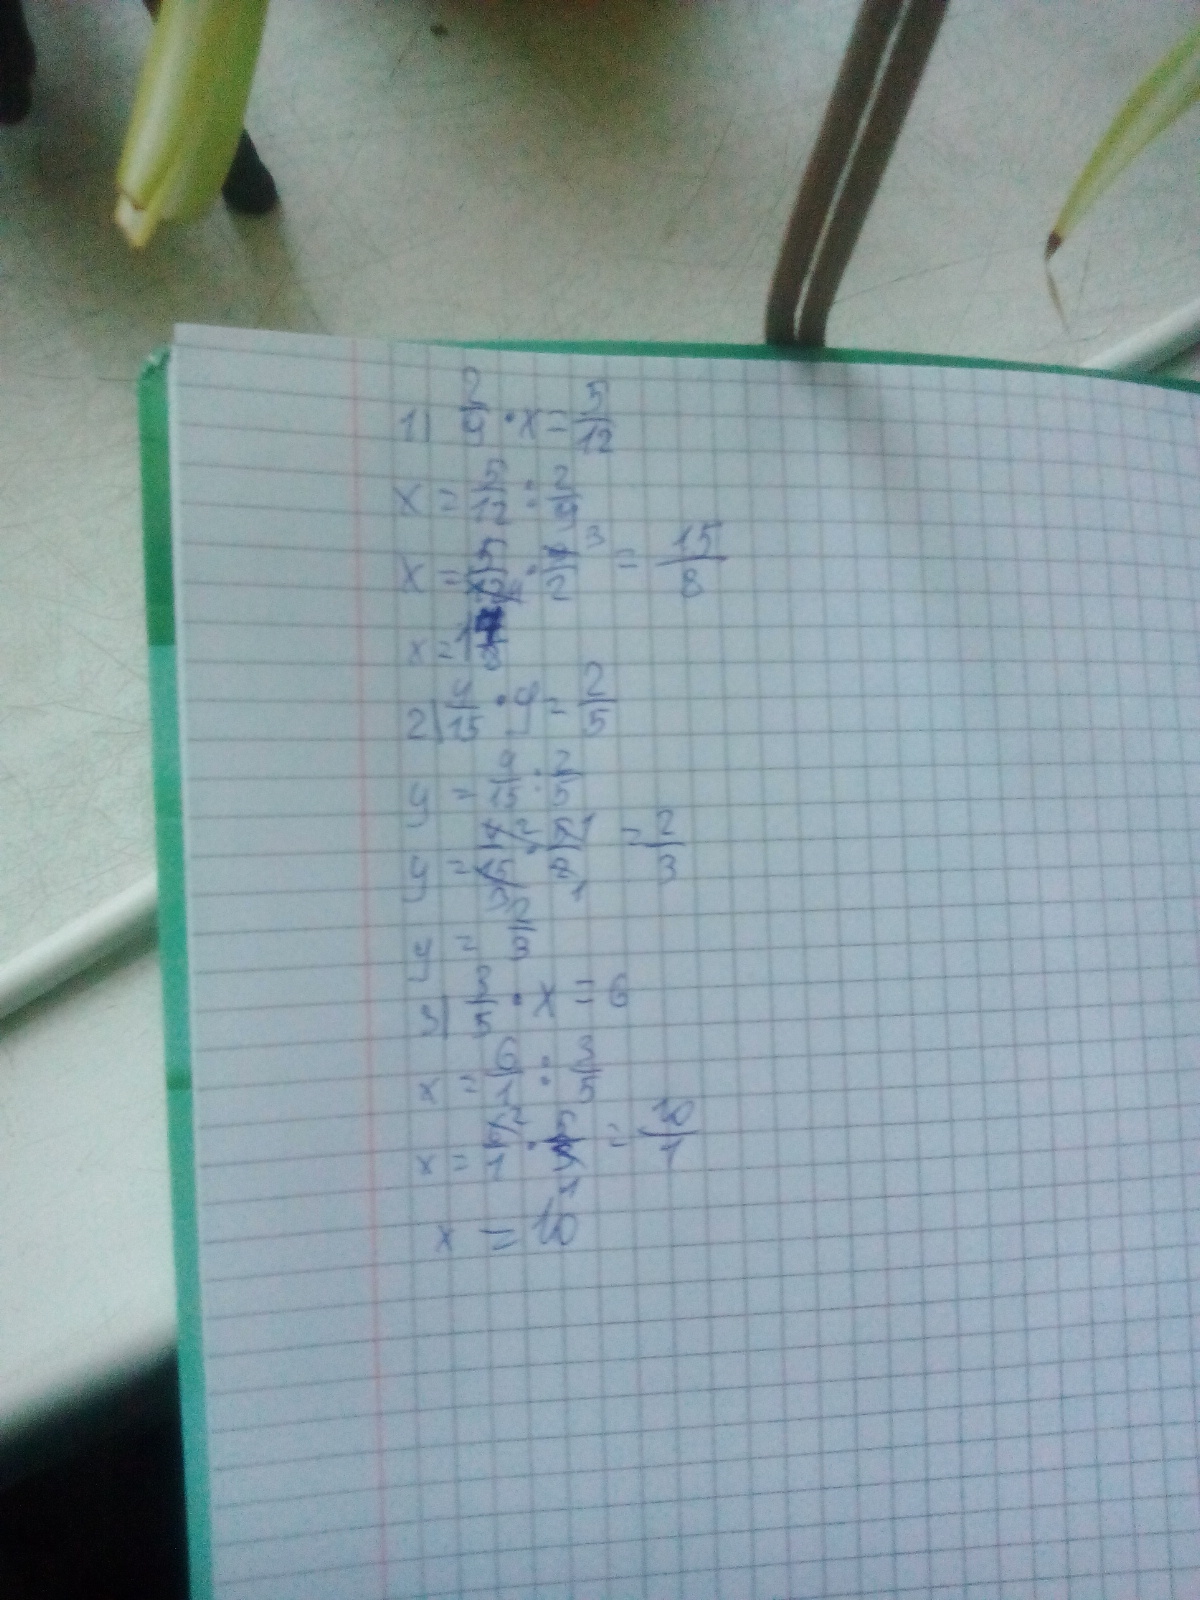 1) 2/9 · x = 5/12
x = 5/12 : 2/9
x = 5/12 4 · 9/2 3 = 15/8
x = 1 7/8
2) 4/15 · y = 2/5
y = 4/15 : 2/5
y = 4/15 2 3 · 5/2 1 1 = 2/3
y = 2/3
3) 3/5 · x = 6
x = 6/1 : 3/5
x = 6/1 2 · 5/3 1 = 10/1
x = 10